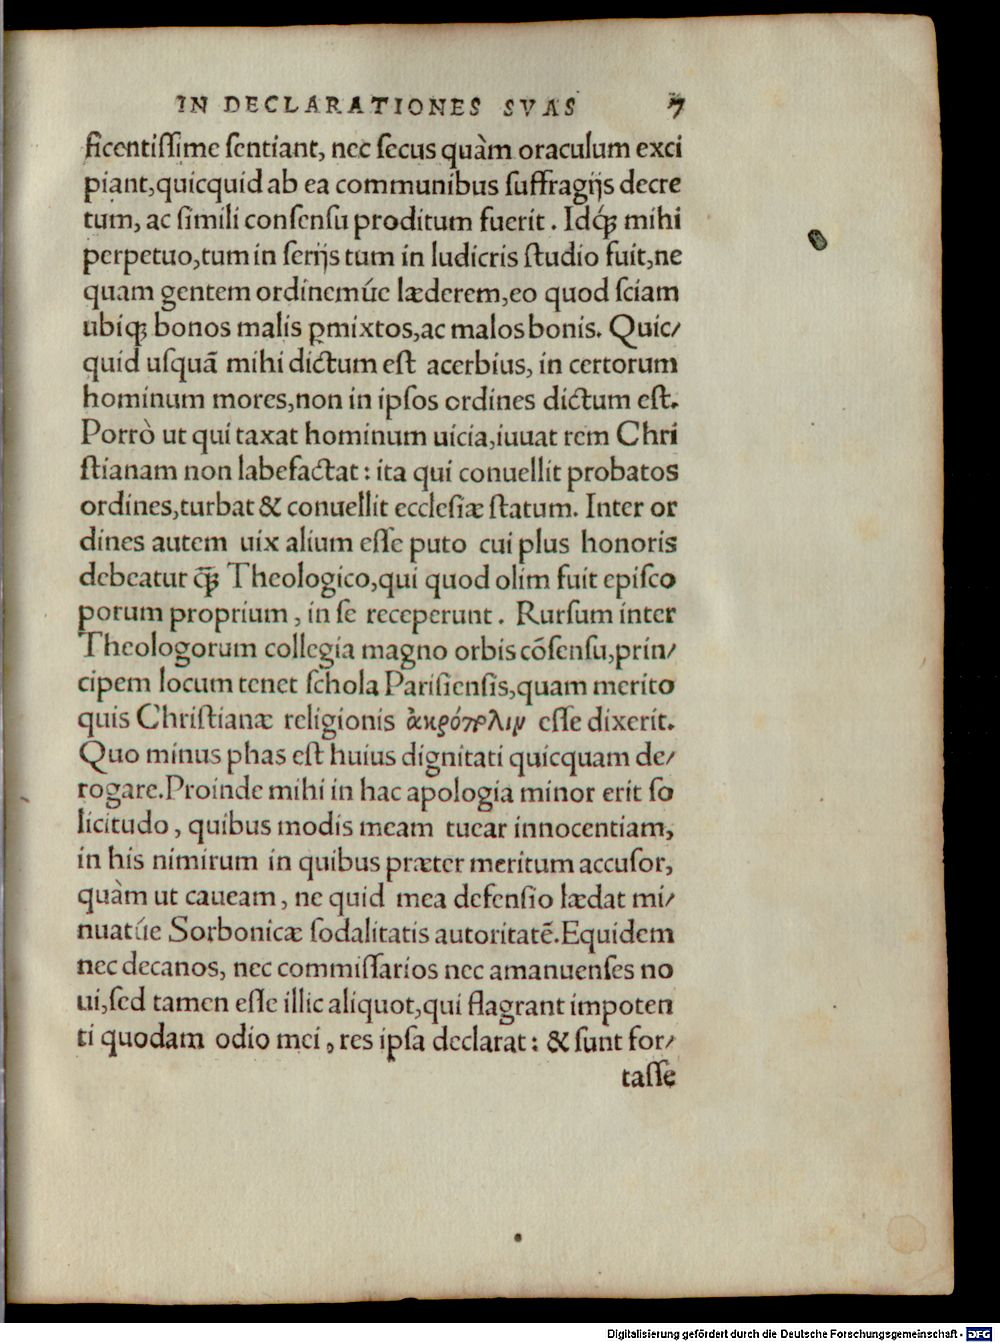 IN DECLARATIONES SVAS 7
ficentiſſime ſentiant, nec ſecus quàm oraculum exci
piant,quicquid ab ea communibus ſuffragijs decre
tum, ac ſimili conſenſu proditum fuerit. Idq́ꝫ mihi
perpetuo,tum in ſerijs tum in ludicris ſtudio fuit,ne
quam gentem ordinemúe læderem,eo quod ſciam
ubiqꝫ bonos malis ꝑmixtos,ac malos bonis. Quic/
quid uſquã mihi dictum eſt acerbius, in certorum
hominum mores,non in ipſos ordines dictum eſt.
Porrò ut qui taxat hominum uicia,iuuat rem Chri
ſtianam non labefactat: ita qui conuellit probatos
ordines,turbat & conuellit eccleſiæ ſtatum. Inter or
dines autem uix alium eſſe puto cui plus honoris
debeatur q̃ꝫ Theologico,qui quod olim fuit epiſco
porum proprium, in ſe receperunt. Rurſum inter
Theologorum collegia magno orbis cõſenſu,prin/
cipem locum tenet ſchola Pariſienſis,quam merito
quis Chriſtianæ religionis ἀκρόπολιν eſſe dixerit.
Quo minus phas eſt huius dignitati quicquam de/
rogare.Proinde mihi in hac apologia minor erit ſo
licitudo, quibus modis meam tuear innocentiam,
in his nimirum in quibus præter meritum accuſor,
quàm ut caueam, ne quid mea defenſio lædat mi/
nuatúe Sorbonicæ ſodalitatis autoritatẽ.Equidem
nec decanos, nec commiſſarios nec amanuenſes no
ui,ſed tamen eſſe illic aliquot,qui flagrant impoten
ti quodam odio mei, res ipſa declarat: & ſunt for/
taſſe
Digitalisierung gefördert durch die Deutsche Forschungsgemeinschaft - DFG